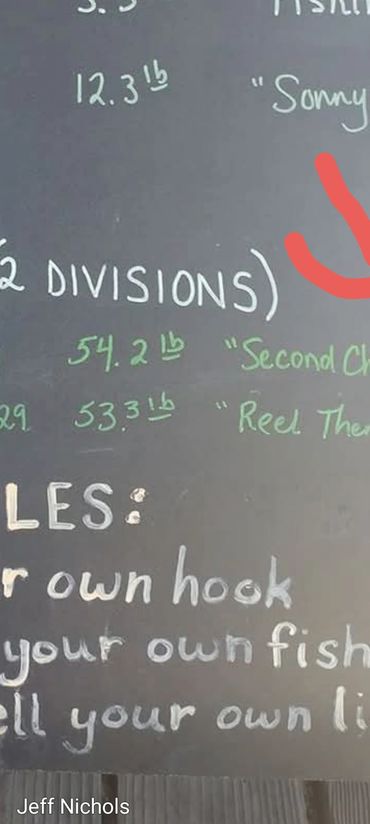 12.3 lb "Sonny
2 DIVISIONS)
54.2 lb "Second Ch
29 53.3 lb "Reel The
LES:
r own hook
your own fish
ell your own li
Jeff Nichols